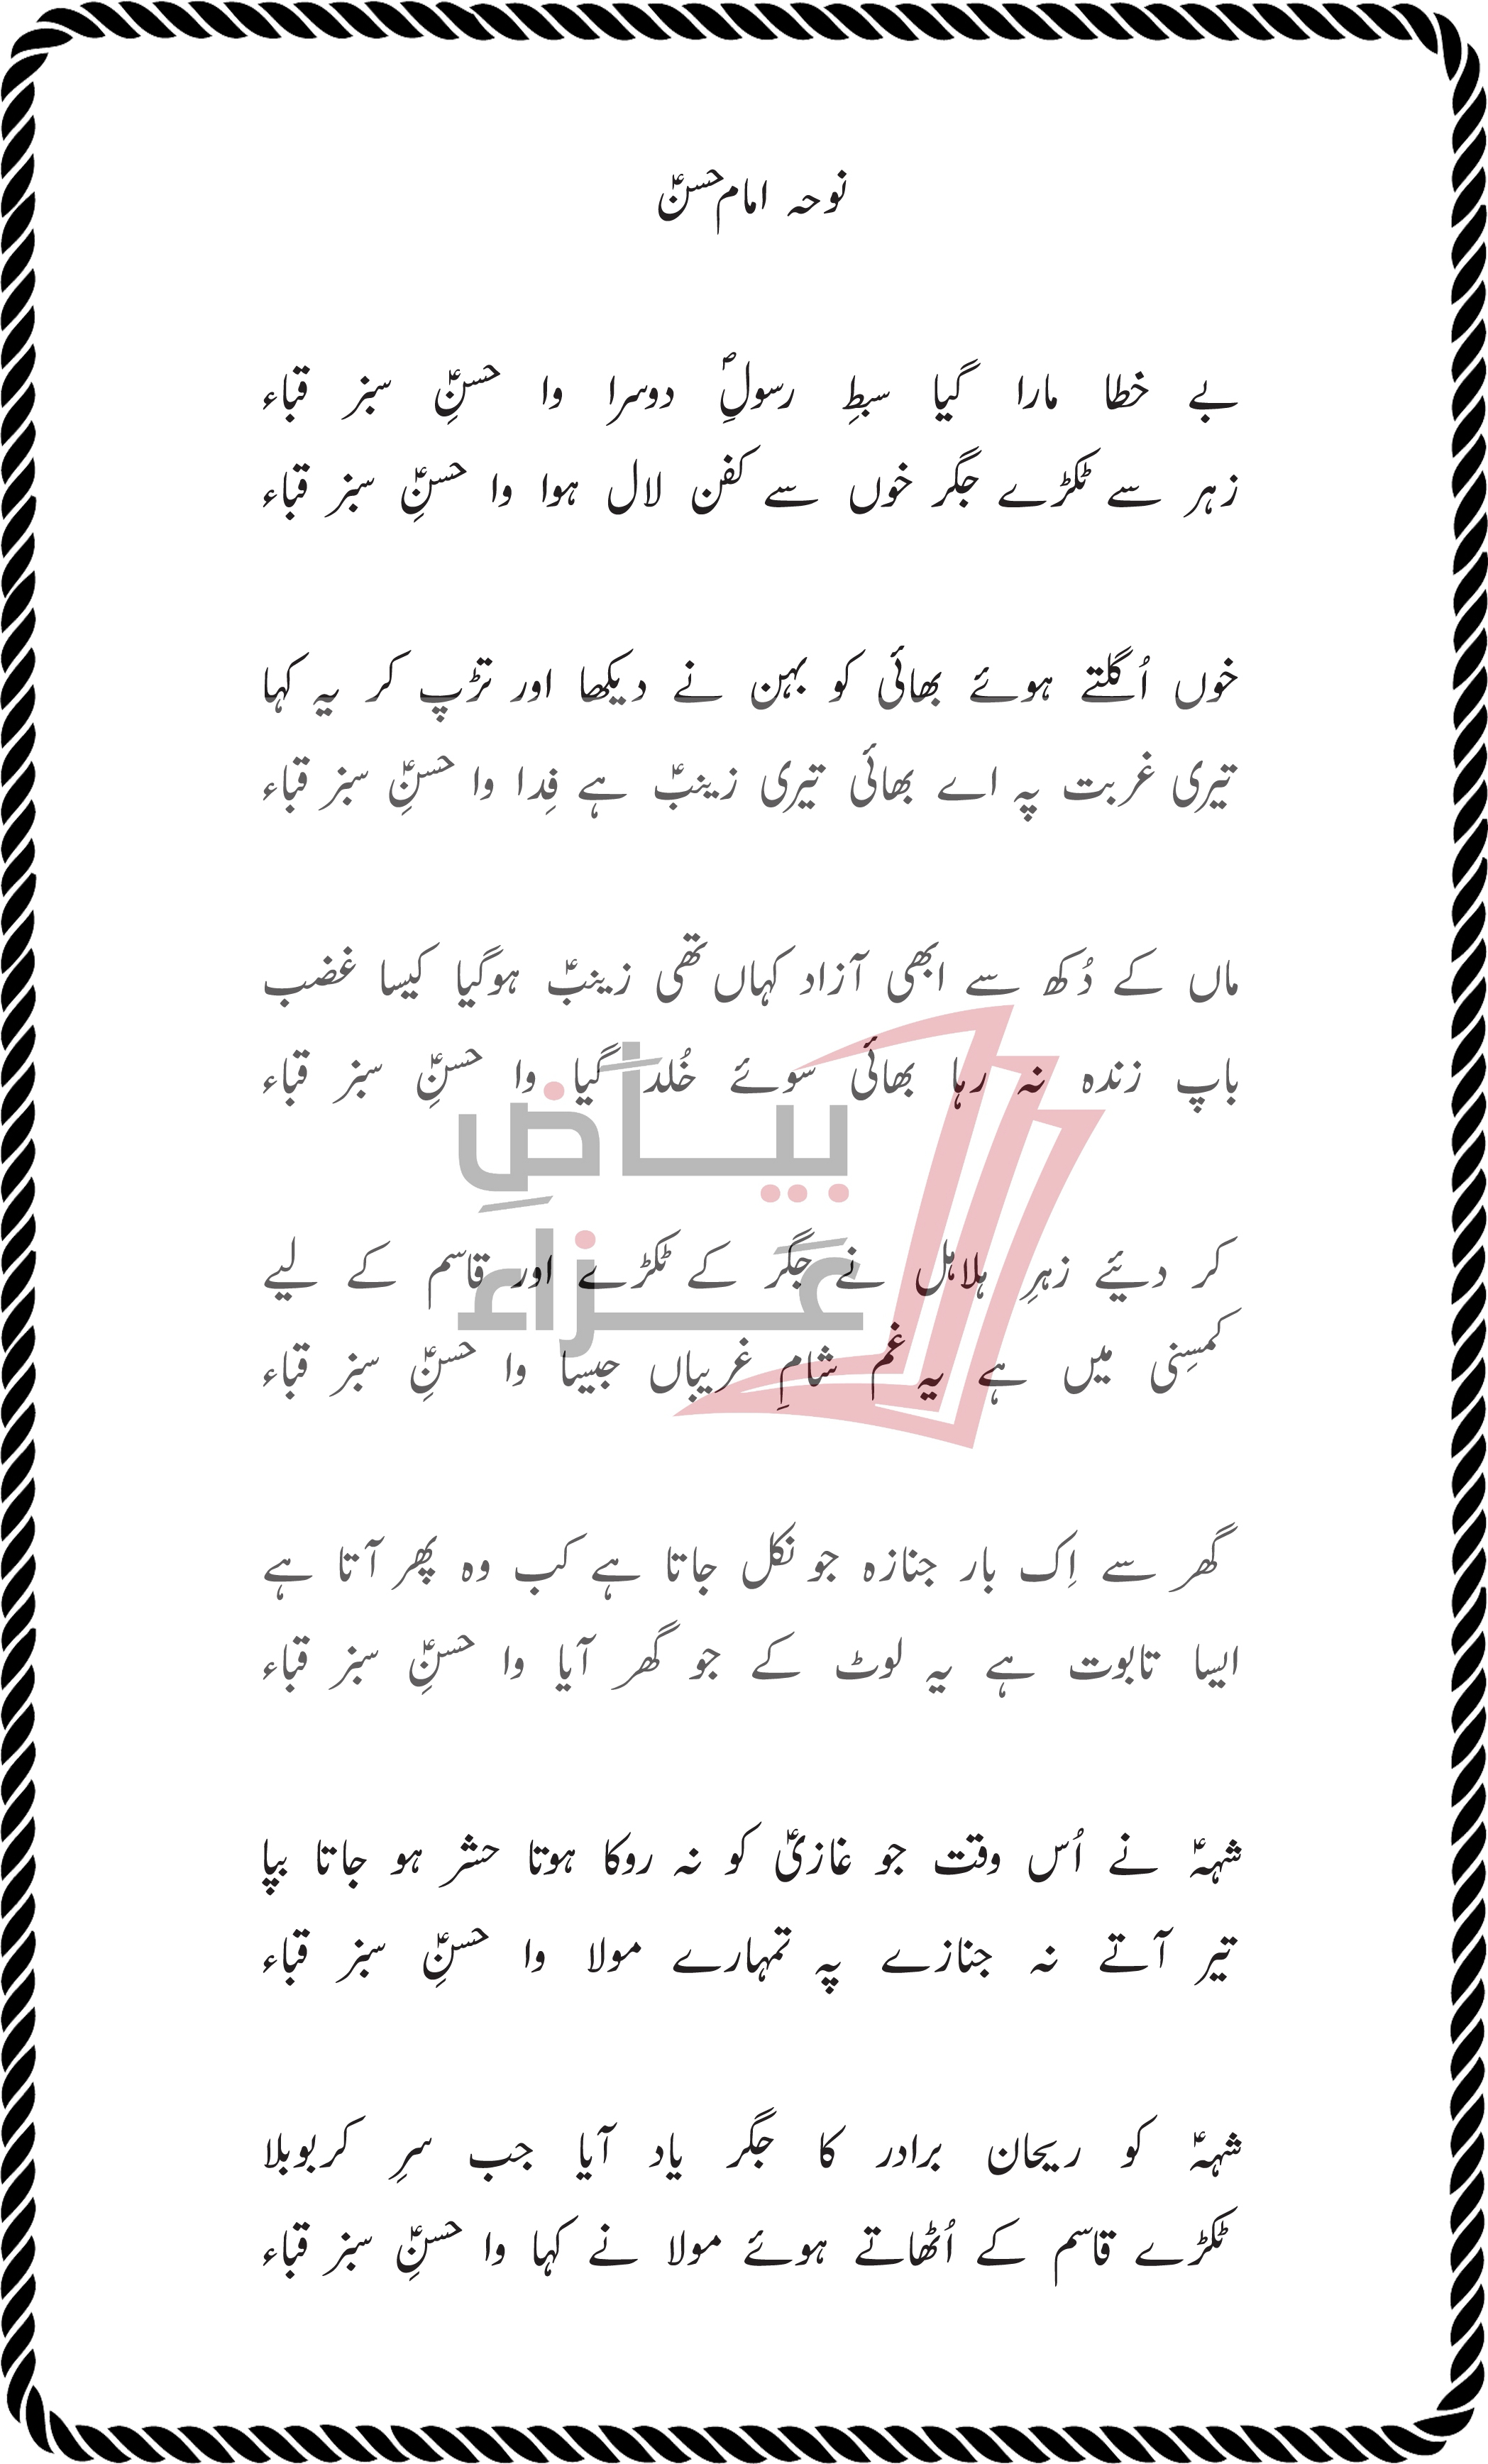 نوحہ امام حسنؑ
بے خطا مارا گیا سبطِ رسولِؐ دوسرا وا حسنِؑ سبز قباء
زہر سے ٹکڑے جگر خوں سے کفن لال ہوا وا حسنِؑ سبز قباء
خوں اُگلتے ہوئے بھائی کو بہن نے دیکھا اور تڑپ کر یہ کہا
تیری غربت پہ اے بھائی تیری زینبؑ ہے فِدا وا حسنِؑ سبز قباء
ماں کے دُکھ سے ابھی آزاد کہاں تھی زینبؑ ہوگیا کیسا غضب
باپ زندہ نہ رہا بھائی سوئے خُلد گیا وا حسنِؑ سبز قباء
بیاضِ
عزاء
کر دیئے زہرِ ہلاہل نے جگر کے ٹکڑے اور قاسم کے لیے
کمسِنی میں ہے یہ غم شامِ غریباں جیسا وا حسنِؑ سبز قباء
گھر سے اِک بار جنازہ جو نکل جاتا ہے کب وہ پھر آتا ہے
ایسا تابوت ہے یہ لوٹ کے جو گھر آیا وا حسنِؑ سبز قباء
شہہؑ نے اُس وقت جو غازیؑ کو نہ روکا ہوتا حشر ہو جاتا بپا
تیر آتے نہ جنازے پہ تمہارے مولا وا حسنِؑ سبز قباء
شہہؑ کو ریحان برادر کا جگر یاد آیا جب سرِ کربوبلا
ٹکڑے قاسم کے اُٹھاتے ہوئے مولا نے کہا وا حسنِؑ سبز قباء